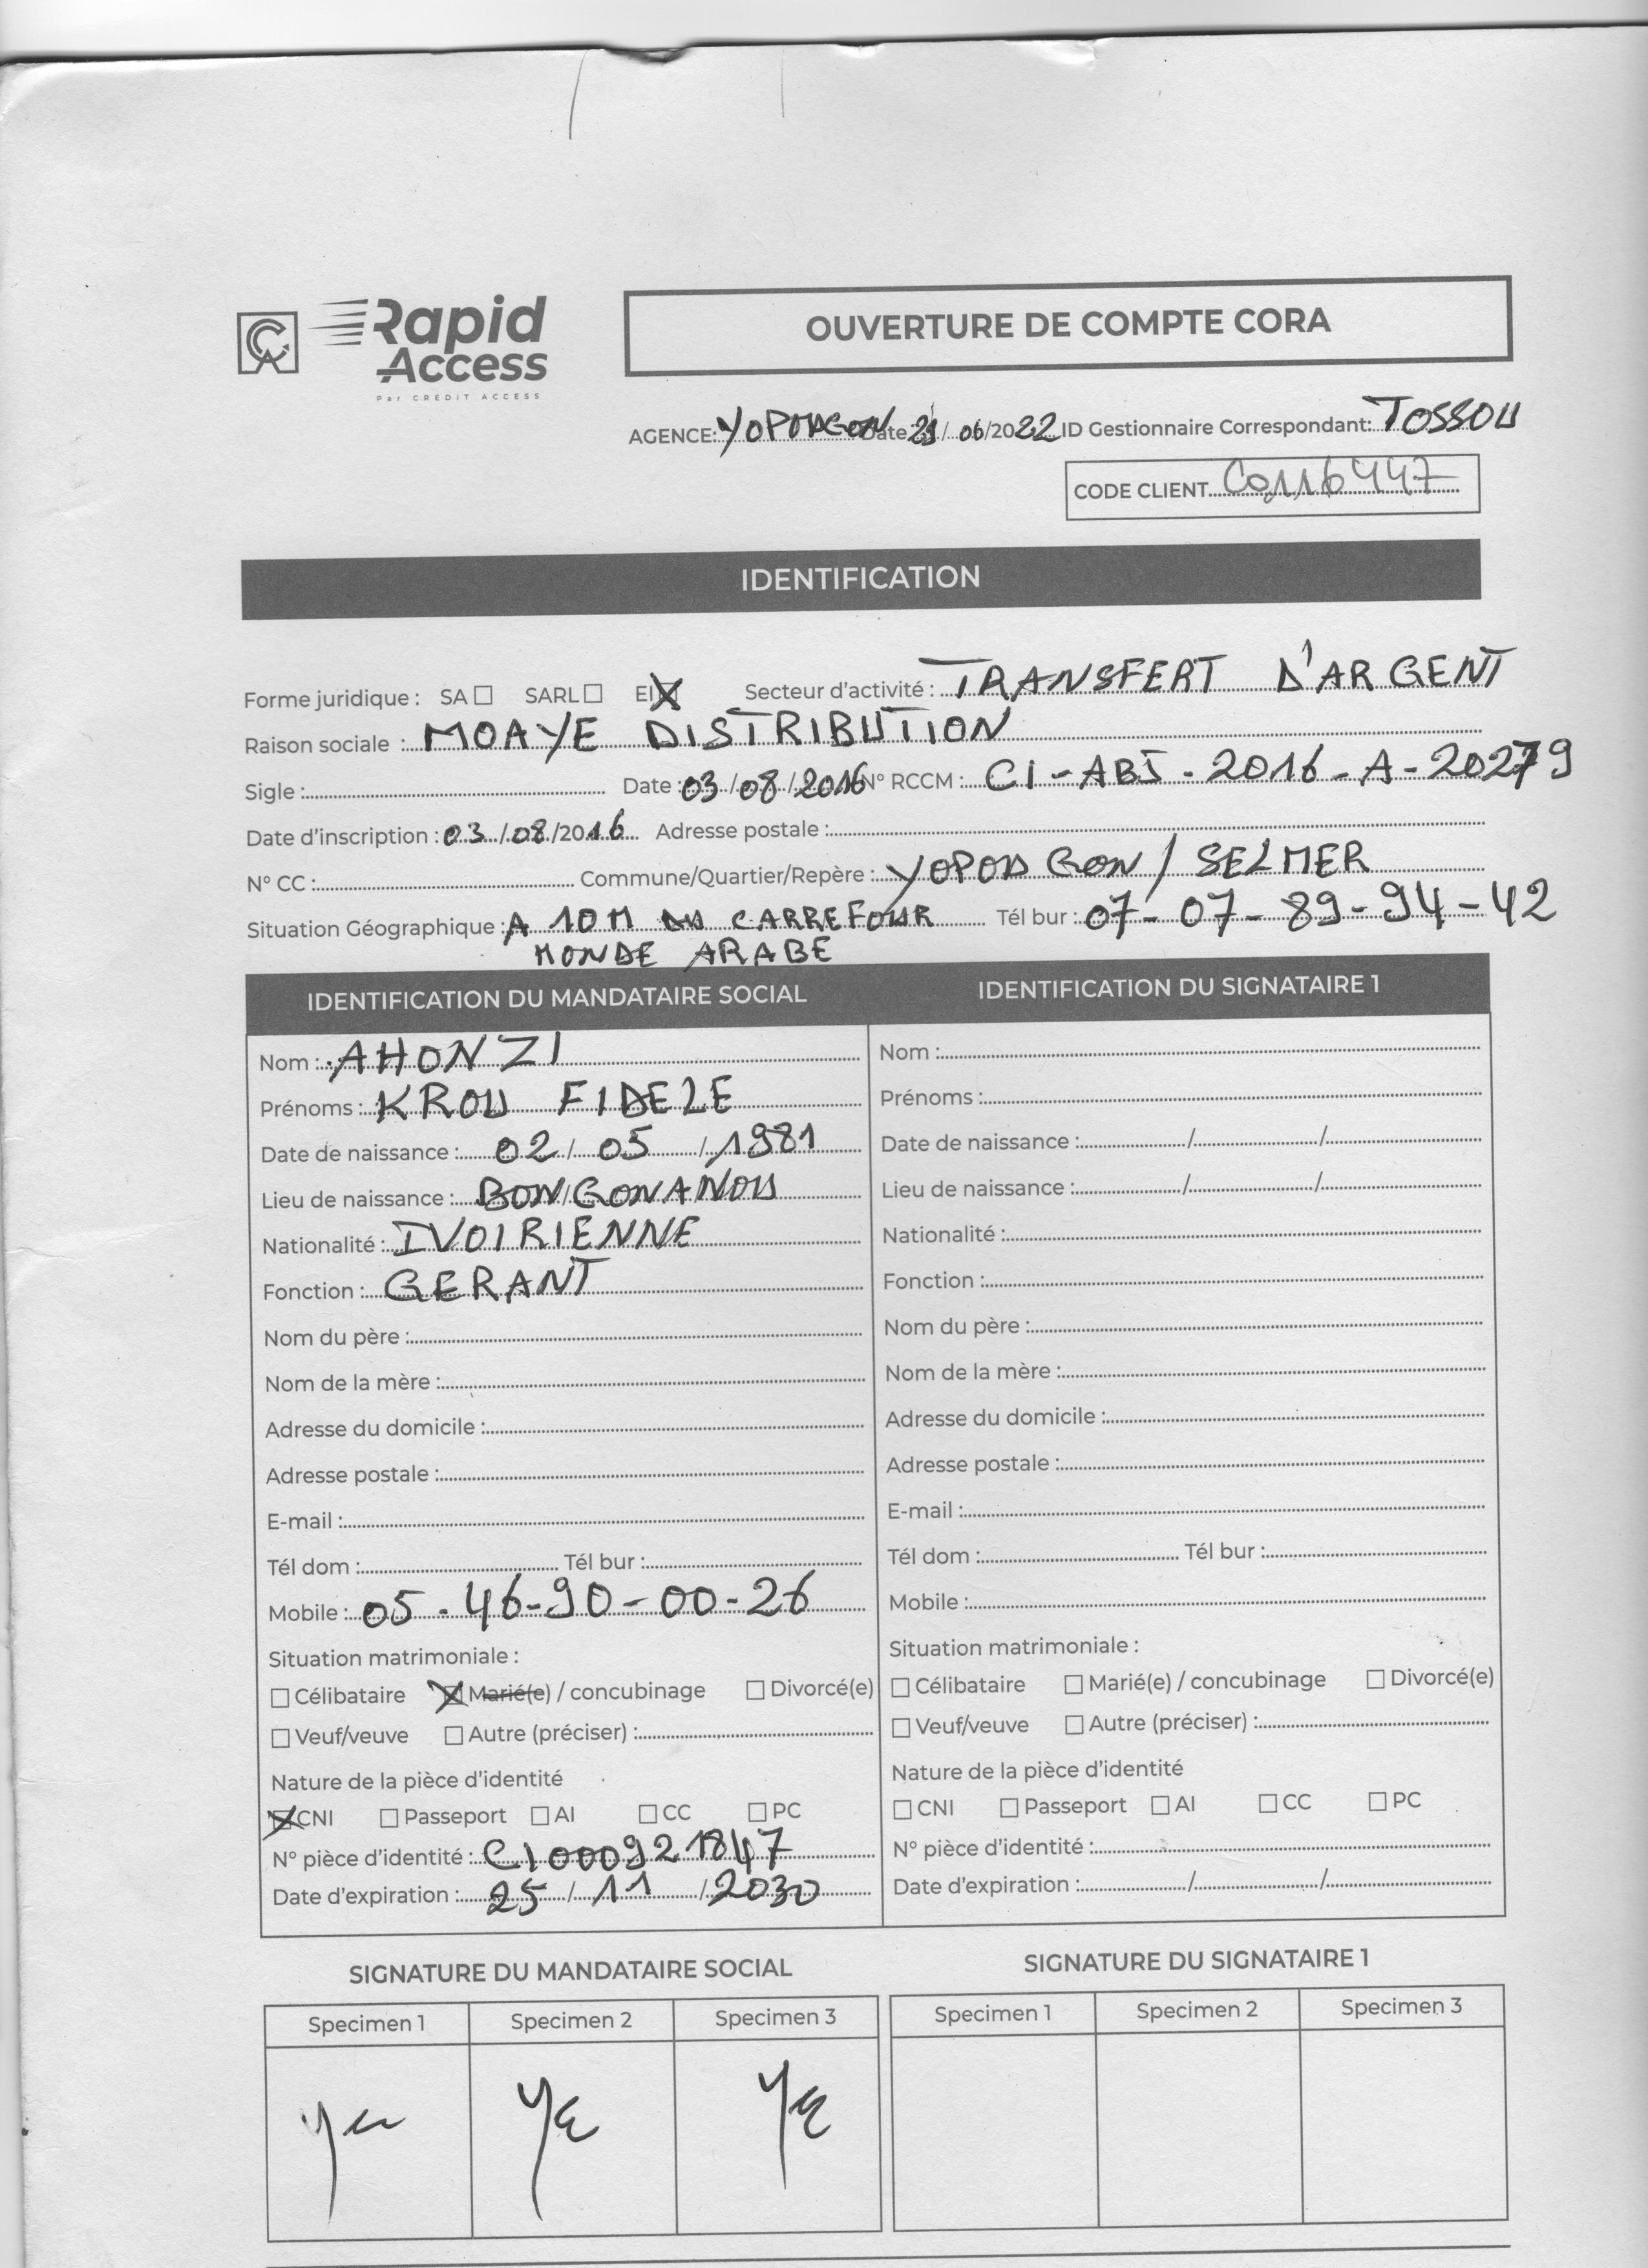 Rapid
Access
Par CREDIT ACCESS
OUVERTURE DE COMPTE CORA
AGENCE: YOPOUGON Date 21/06/2022 ID Gestionnaire Correspondant: TOSSOU
CODE CLIENT C0116447
IDENTIFICATION
Forme juridique : SA ☐ SARL ☐ EI ☒ Secteur d'activité : TRANSFERT D'ARGENT
Raison sociale : MOAYE DISTRIBUTION
Sigle : Date : 03/08/2016 N° RCCM : CI-ABJ-2016-A-20279
Date d'inscription : 03/08/2016 Adresse postale :
N° CC : Commune/Quartier/Repère : YOPOUGON / SELMER
Situation Géographique : A 10M DU CARREFOUR Tél bur : 07-07-89-94-42
MONDE ARABE
IDENTIFICATION DU MANDATAIRE SOCIAL
Nom : AHONZI
Prénoms : KROU FIDELE
Date de naissance : 02/05/1981
Lieu de naissance : BONGONANOU
Nationalité : IVOIRIENNE
Fonction : GERANT
Nom du père :
Nom de la mère :
Adresse du domicile :
Adresse postale :
E-mail :
Tél dom : Tél bur :
Mobile : 05-46-90-00-26
Situation matrimoniale :
☐ Célibataire ☒ Marié(e) / concubinage ☐ Divorcé(e)
☐ Veuf/veuve ☐ Autre (préciser) :
Nature de la pièce d'identité
☒ CNI ☐ Passeport ☐ AI ☐ CC ☐ PC
N° pièce d'identité : CI000921847
Date d'expiration : 25/11/2030
IDENTIFICATION DU SIGNATAIRE 1
Nom :
Prénoms :
Date de naissance : / /
Lieu de naissance : / /
Nationalité :
Fonction :
Nom du père :
Nom de la mère :
Adresse du domicile :
Adresse postale :
E-mail :
Tél dom : Tél bur :
Mobile :
Situation matrimoniale :
☐ Célibataire ☐ Marié(e) / concubinage ☐ Divorcé(e)
☐ Veuf/veuve ☐ Autre (préciser) :
Nature de la pièce d'identité
☐ CNI ☐ Passeport ☐ AI ☐ CC ☐ PC
N° pièce d'identité :
Date d'expiration : / /
SIGNATURE DU MANDATAIRE SOCIAL
Specimen 1 Specimen 2 Specimen 3
SIGNATURE DU SIGNATAIRE 1
Specimen 1 Specimen 2 Specimen 3